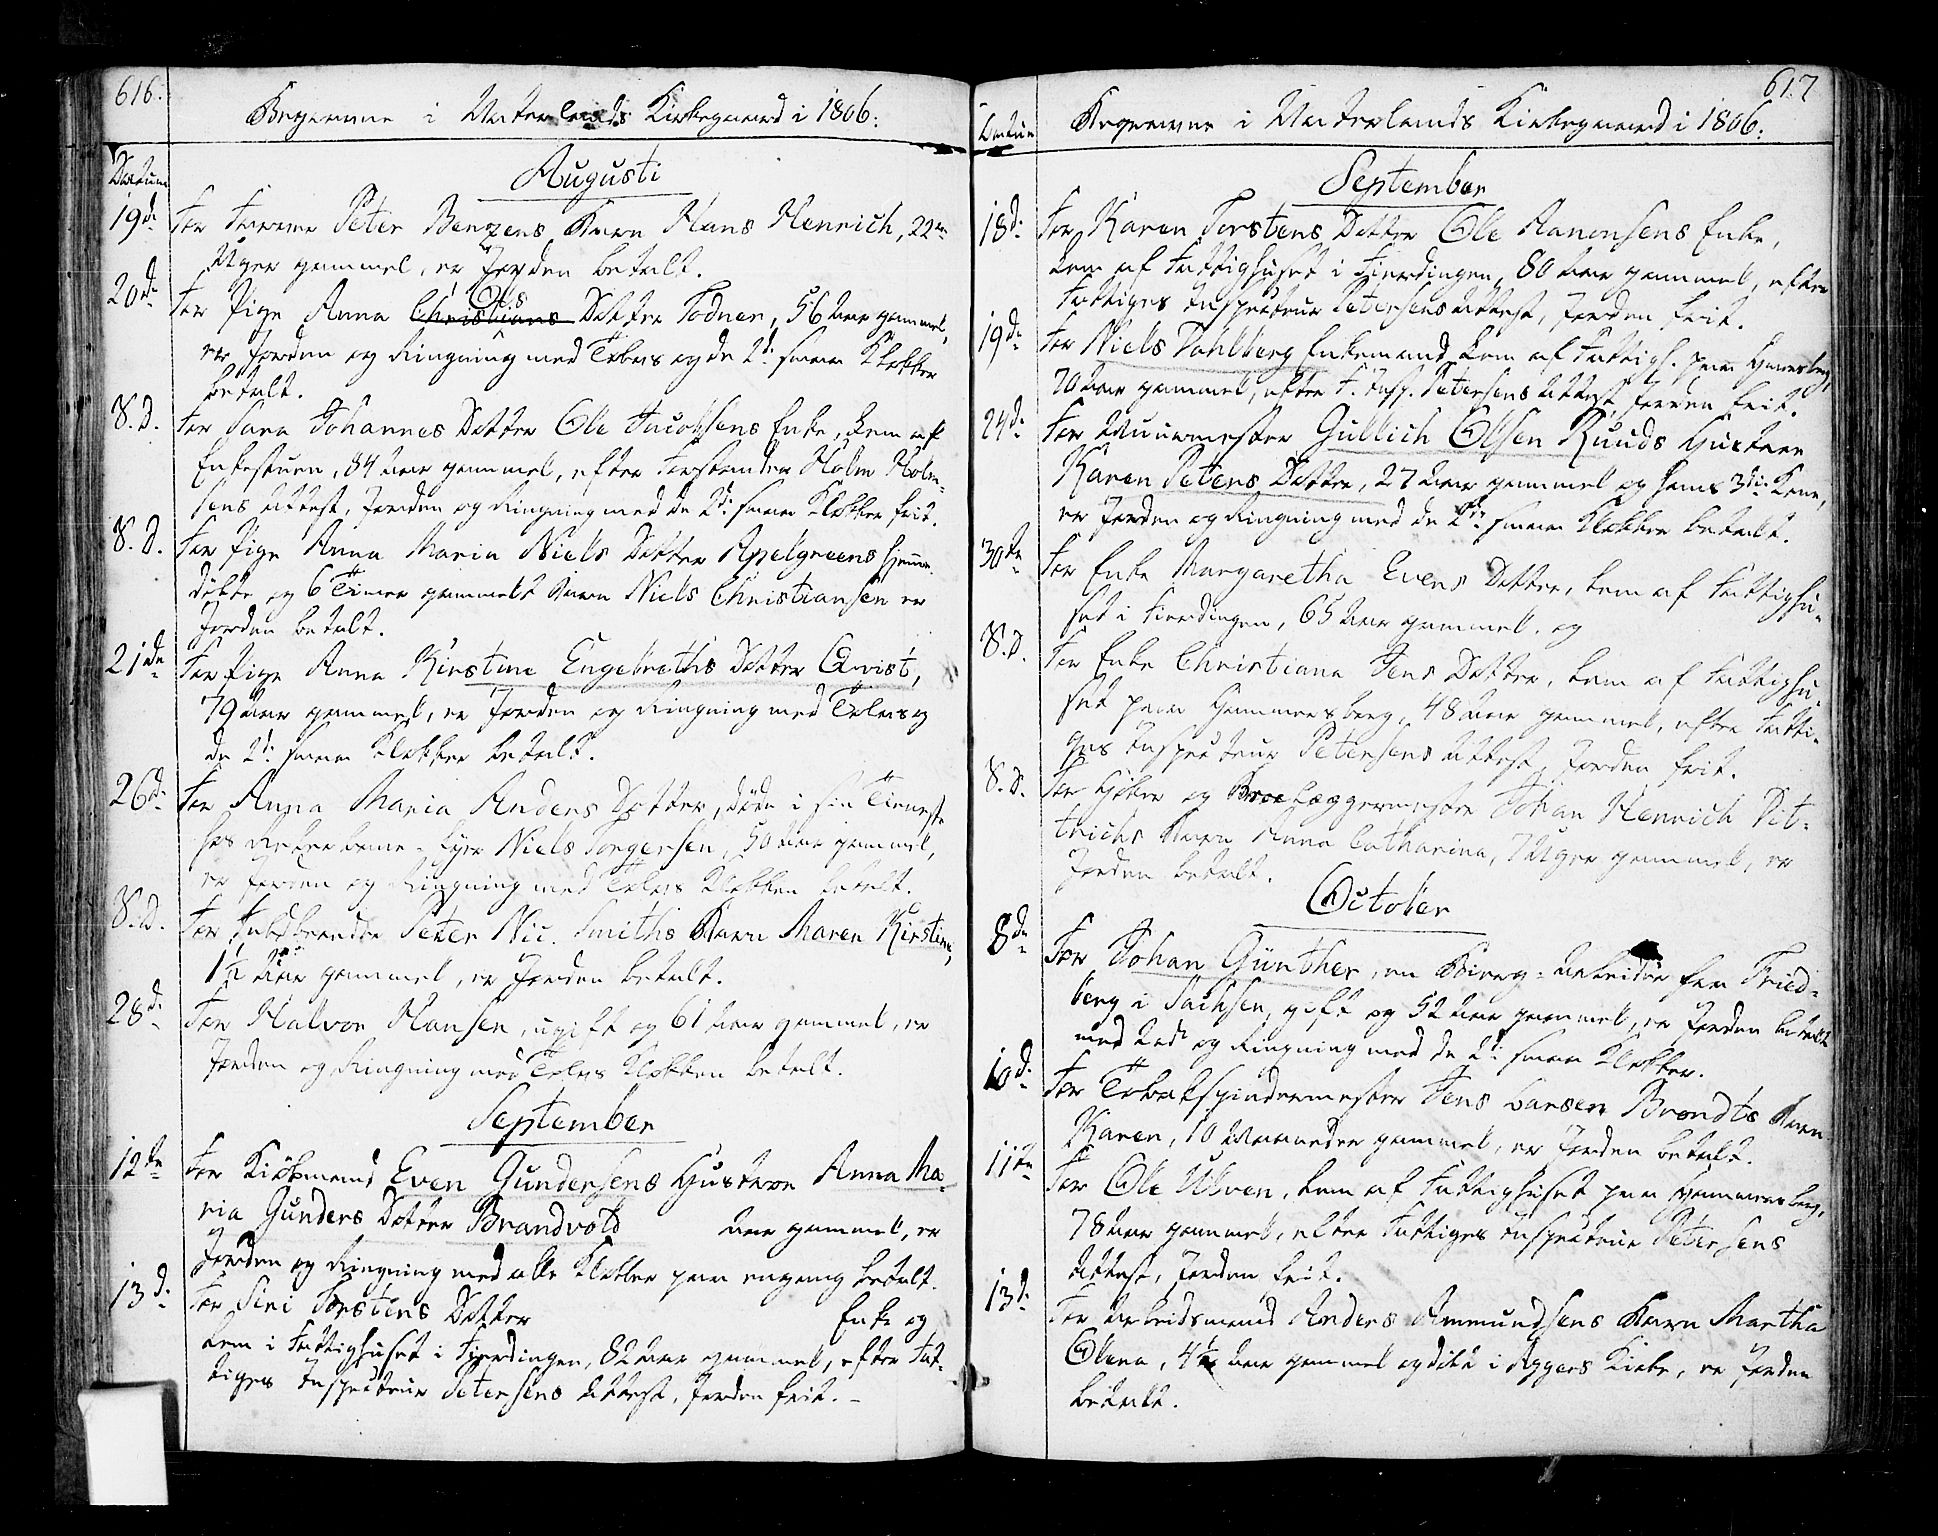 616.
Begravne i Vaterlands Kirkegaard i 1806.
Datum
Augusti
19de For Peter Benzens Barn Hans Henrich, 22
Uger gammel, er Jorden betalt.
20de For Pige Anna Christians Ols Datter Todner, 56 Aar gammel,
er Jorden og Ringning med Tolvs og de 2de smaae Klokker
betalt.
S. D. For Sara Johannes Datter Ole Jacobsens Enke, Lem af
Enkestuen, 84 Aar gammel, efter Forstander Holm Holm-
sens Attest, Jorden og Ringning med de 2de smaae Klokker frit.
S. D. For Pige Anna Maria Niels Datter Apelgreens hjemme
døbte og 6 Timer gammelt Barn Niels Christiansen er
Jorden betalt.
21de For Pige Anna Kirstine Engebreths Datter Qvist,
79 Aar gammel, er Jorden og Ringning med Tolvs og
de 2de smaae Klokker betalt.
26de For Anna Maria Anders Datter, døde i sin Tieneste
hos Niels Torgersen, 50 Aar gammel,
er Jorden og Ringning med Tolvs Klokken betalt.
S. D. For Peter Nic. Smiths Barn Maren Kirstine,
1½ Aar gammel, er Jorden betalt.
28de For Halvor Hansen, ugift og 61 Aar gammel, er
Jorden og Ringning med Tolvs Klokken betalt.
September
12te For Kiøbmand Even Gundersens Hustrue Anna Ma-
ria Gunders Datter Brandvold Aar gammel, er
Jorden og Ringning med alle Klokker paa engang betalt.
13de For Siri Torstens Datter Enke og
Lem i Fattighuset i Fierdingen, 82 Aar gammel, efter Fat-
tiges Inspecteur Petersens Attest, Jorden frit. -
617
Begravne i Vaterlands Kirkegaard i 1806.
Datum
September
18de For Karen Torstens Datter Ole Aanonsens Enke,
Lem af Fattighuset i Fierdingen, 80 Aar gammel, efter
Fattiges Inspecteur Petersens Attest, Jorden frit.
19de For Niels Dahlberg Enkemand Lem af Fattigh. paa Hammersberg,
70 Aar gammel, efter F. Insp. Petersens Attest, Jorden frit.
24de For Muurmester Gullich Olsen Ruuds Hustrue
Karen Peters Datter, 27 Aar gammel og hans 3die Kone,
er Jorden og Ringning med de 2de smaae Klokker betalt.
30te For Enke Margaretha Evens Datter, Lem af Fattighu-
set i Fierdingen, 65 Aar gammel, og
S. D. For Enke Christiana Jens Datter, Lem af Fattighu-
set paa Hammersberg, 48 Aar gammel, efter Fatti-
ges Inspecteur Petersens Attest, Jorden frit.
S. D. For og Broelæggermester Johan Henrich Dit-
trichs Barn Anna Catharina, 7 Uger gammel, er
Jorden betalt.
October
8de For Johan Günther, en Biereg-Arbeider fra Fried-
berg i Sachsen, gift og 52 Aar gammel, er Jorden betalt
med og Ringning med de 2de smaae Klokker.
10de For Tobakspindermester Jens Larsen Brandts Barn
Karen, 10 Maaneder gammel, er Jorden betalt.
11te For Ole Ulven, Lem af Fattighuset paa Hammersberg,
78 Aar gammel, efter Fattiges Inspecteur Petersens
Attest, Jorden frit.
13de For Arbeidsmand Anders Ammundsens Barn Martha
Olena, 4½ Aar gammel og døbt i Aggers Kirke, er Jorden
betalt.